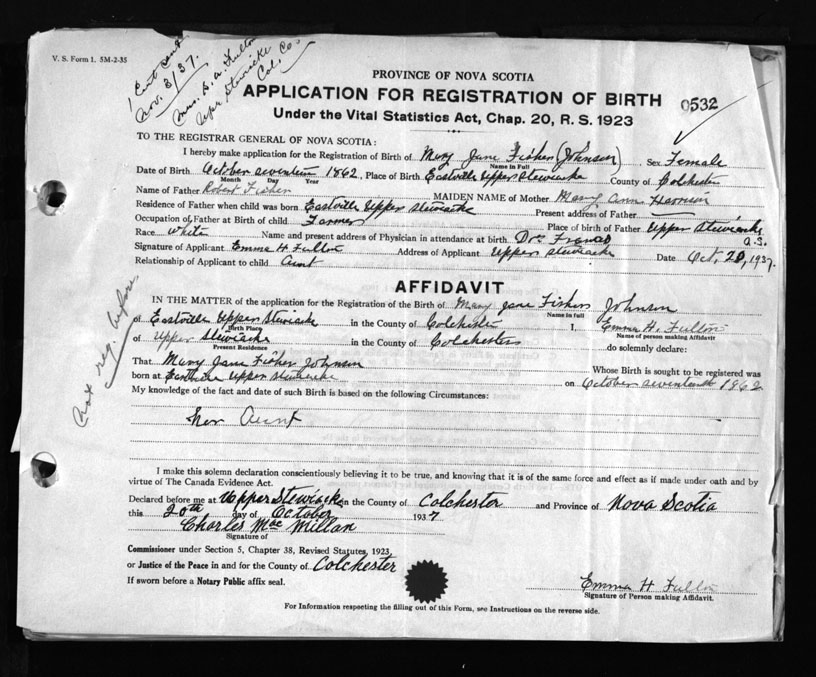 V. S. Form 1. 5M-2-35
1 Cert sent
Nov. 3/37.
Mrs. S. A. Fulton
Upper Stewiacke
Col. Co.
PROVINCE OF NOVA SCOTIA
APPLICATION FOR REGISTRATION OF BIRTH
0532
Under the Vital Statistics Act, Chap. 20, R. S. 1923
TO THE REGISTRAR GENERAL OF NOVA SCOTIA:
I hereby make application for the Registration of Birth of Mary Jane Fisher (Johnson) Sex Female
Name in Full
Date of Birth October seventeen 1862, Place of Birth Eastville Upper Stewiacke County of Colchester
Month Day Year
Name of Father Robert Fisher MAIDEN NAME of Mother Mary Ann
Residence of Father when child was born Eastville Upper Stewiacke Present address of Father
Occupation of Father at Birth of child Farmer Place of birth of Father Upper Stewiacke
Race White Name and present address of Physician in attendance at birth Dr.
Signature of Applicant Emma H Fulton Address of Applicant Upper Stewiacke Date Oct. 20, 1937.
Relationship of Applicant to child Aunt
AFFIDAVIT
IN THE MATTER of the application for the Registration of the Birth of Mary Jane Fisher Johnson
Name in full
of Eastville Upper Stewiacke in the County of Colchester I, Emma H. Fulton
Birth Place Name of person making Affidavit
of Upper Stewiacke in the County of Colchester do solemnly declare:
Present Residence
That Mary Jane Fisher Johnson Whose Birth is sought to be registered was
born at Eastville Upper Stewiacke on October seventeenth 1862
My knowledge of the fact and date of such Birth is based on the following Circumstances:
her Aunt
Not reg. before
I make this solemn declaration conscientiously believing it to be true, and knowing that it is of the same force and effect as if made under oath and by
virtue of The Canada Evidence Act.
Declared before me at Upper Stewiacke in the County of Colchester and Province of Nova Scotia
this 20th day of October 1937
Charles MacMillan
Signature of
Commissioner under Section 5, Chapter 38, Revised Statutes, 1923,
or Justice of the Peace in and for the County of Colchester
If sworn before a Notary Public affix seal.
Emma H Fulton
Signature of Person making Affidavit.
For Information respecting the filling out of this Form, see Instructions on the reverse side.